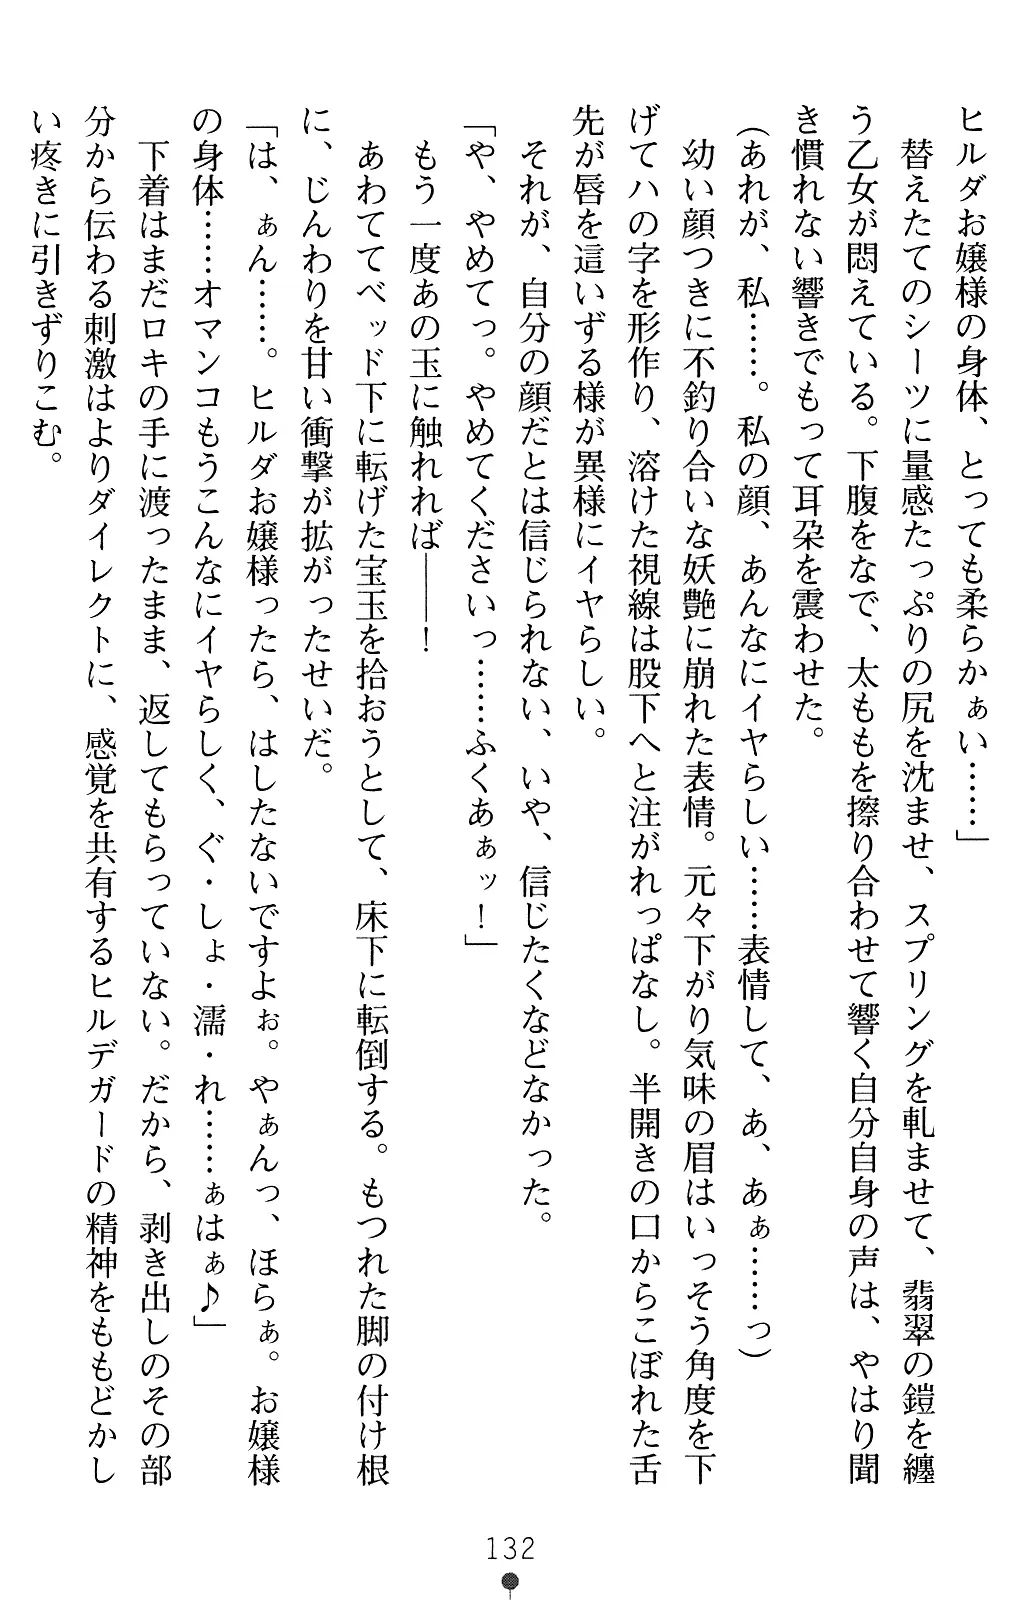 ヒルダお嬢様の身体、とっても柔らかぁい……」
　替えたてのシーツに量感たっぷりの尻を沈ませ、スプリングを軋ませて、翡翠の鎧を纏
う乙女が悶えている。下腹をなで、太ももを擦り合わせて響く自分自身の声は、やはり聞
き慣れない響きでもって耳朶を震わせた。
(あれが、私……。私の顔、あんなにイヤらしい……表情して、あ、あぁ……っ)
　幼い顔つきに不釣り合いな妖艶に崩れた表情。元々下がり気味の眉はいっそう角度を下
げてハの字を形作り、溶けた視線は股下へと注がれっぱなし。半開きの口からこぼれた舌
先が唇を這いずる様が異様にイヤらしい。
　それが、自分の顔だとは信じられない、いや、信じたくなどなかった。
「や、やめてっ。やめてくださいっ……ふくあぁッ！」
　もう一度あの玉に触れれば――！
　あわててベッド下に転げた宝玉を拾おうとして、床下に転倒する。もつれた脚の付け根
に、じんわりを甘い衝撃が拡がったせいだ。
「は、ぁん……。ヒルダお嬢様ったら、はしたないですよぉ。やぁんっ、ほらぁ。お嬢様
の身体……オマンコもうこんなにイヤらしく、ぐ・しょ・濡・れ……ぁはぁ♪」
　下着はまだロキの手に渡ったまま、返してもらっていない。だから、剥き出しのその部
分から伝わる刺激はよりダイレクトに、感覚を共有するヒルデガードの精神をももどかし
い疼きに引きずりこむ。
132